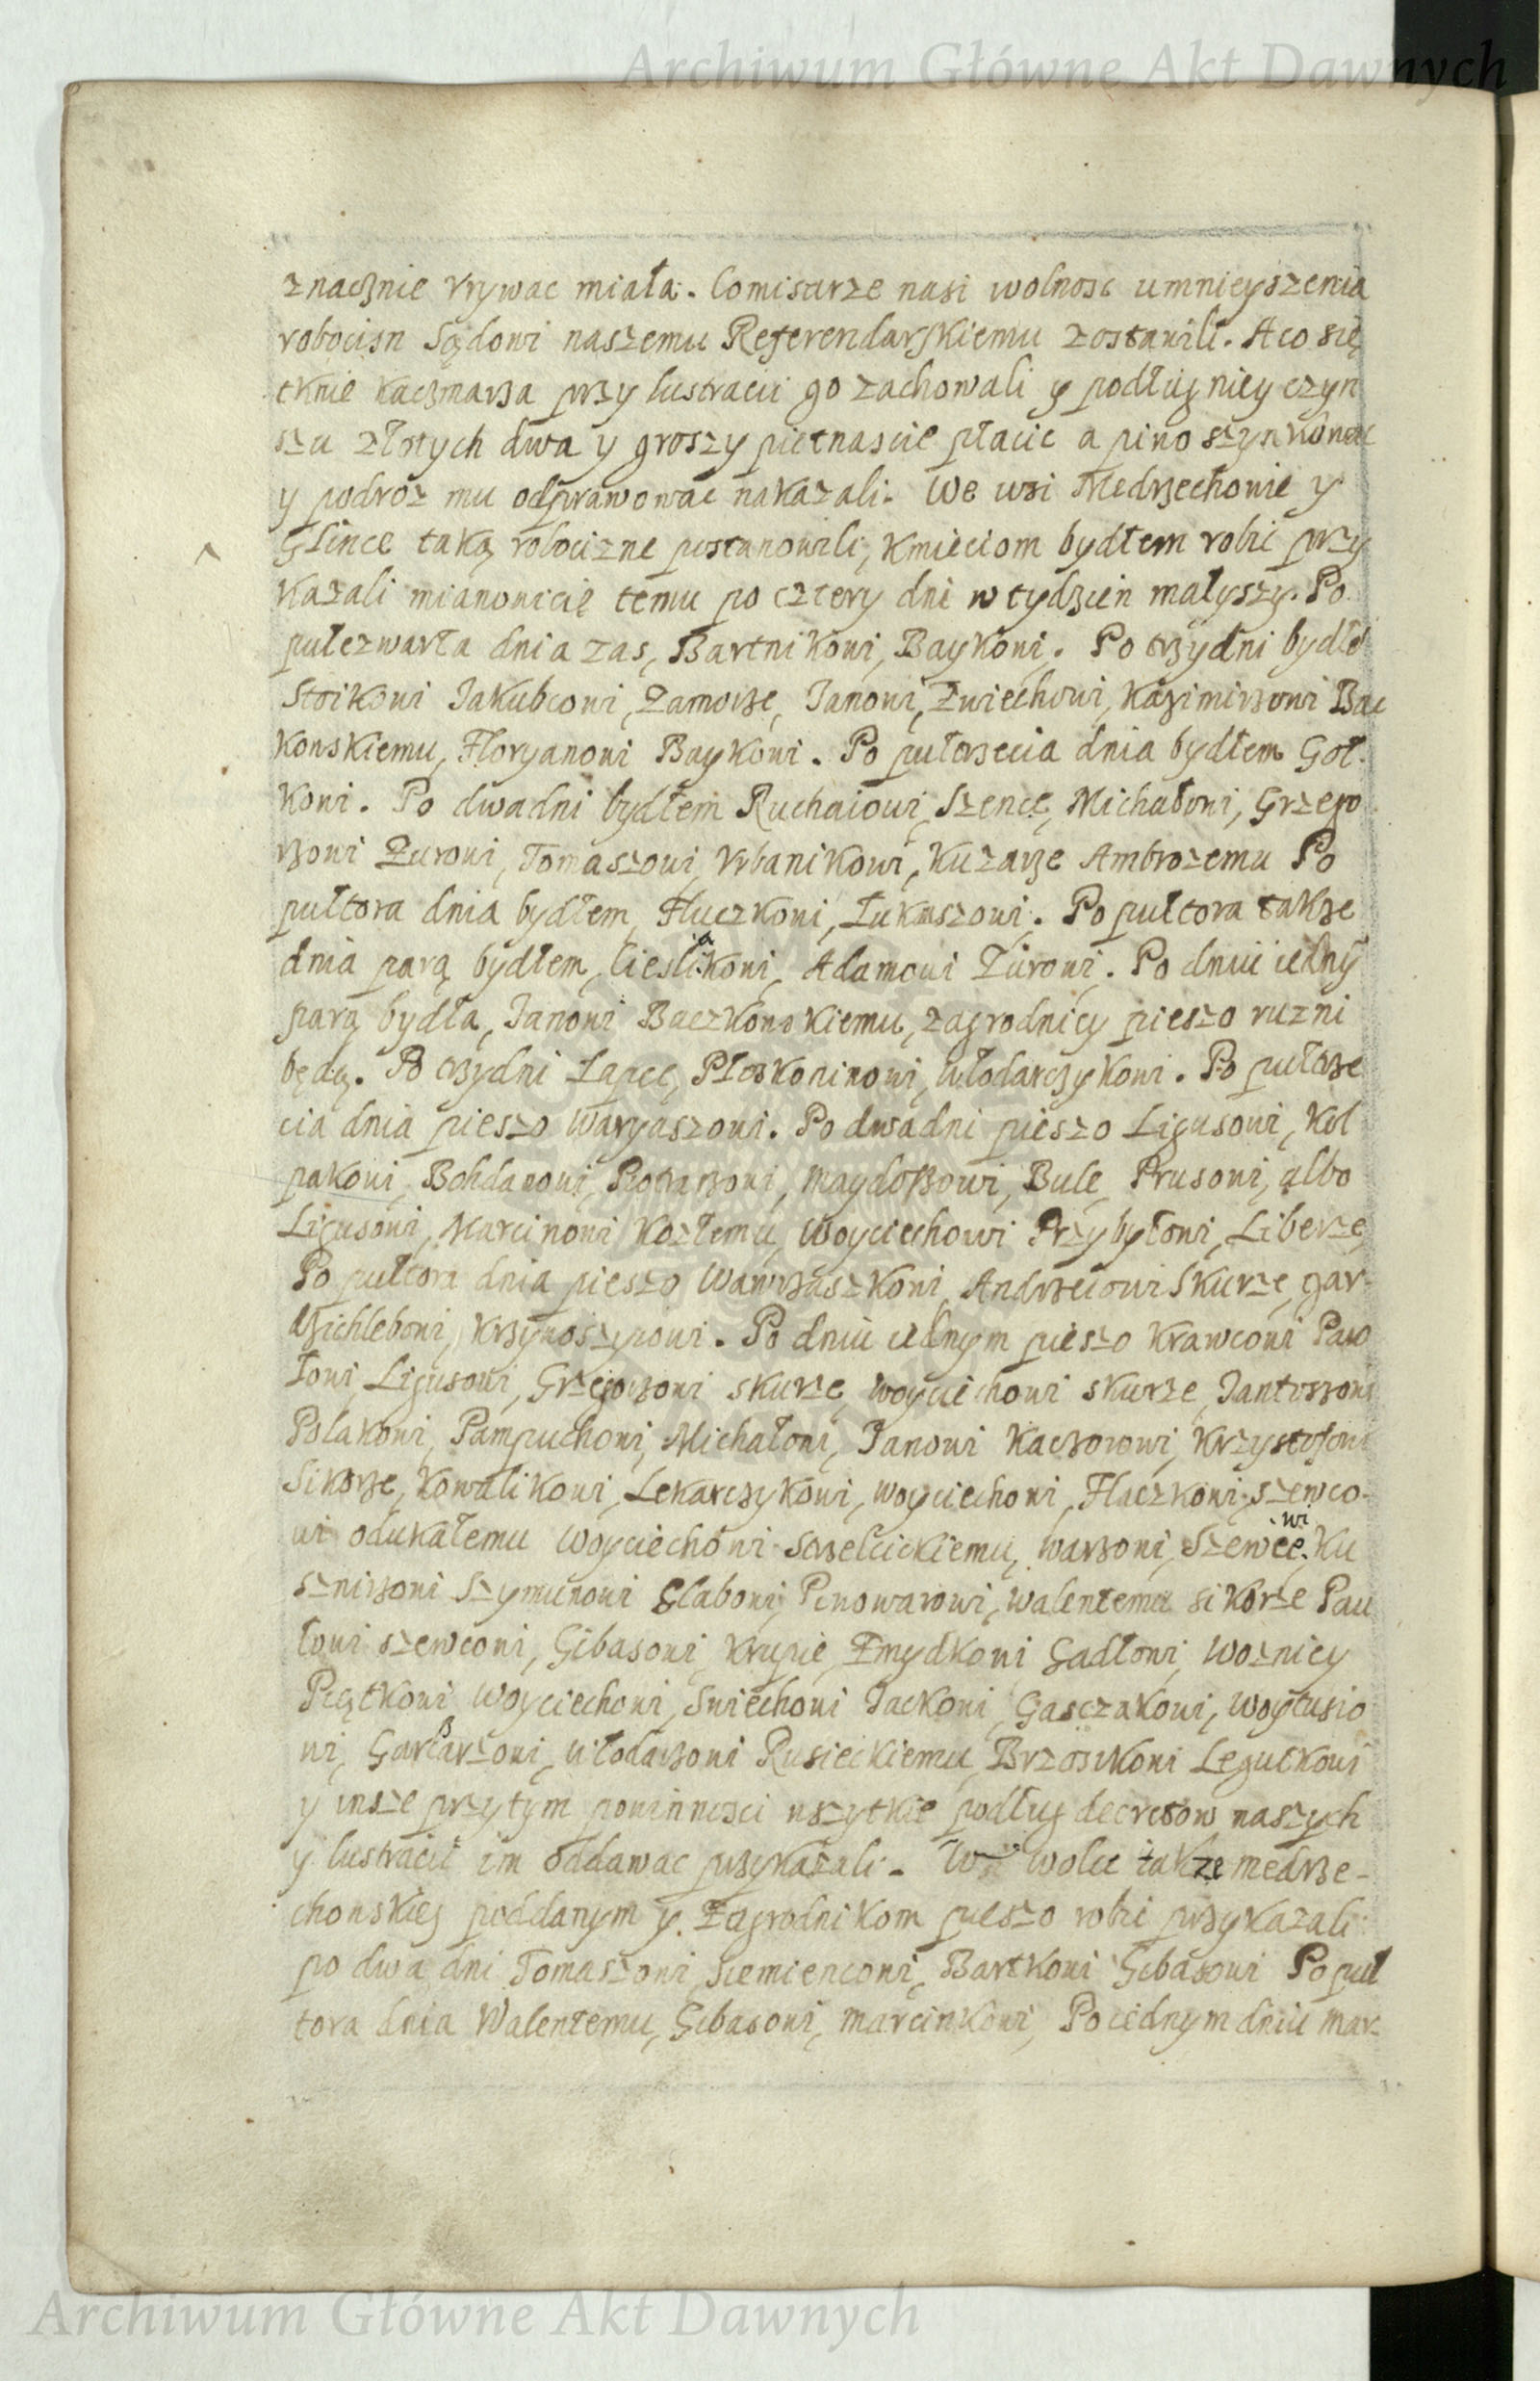 Archiwum Główne Akt Dawnych
znacznie urywac miała. Comisarze nasi wolnosc umnieyszenia
robocizn Sądowi naszemu Referendarskiemu zostawili. A co się
tknie kaczmarza przy lustracii go zachowali y podług niey czyn
szu złotych dwa y groszy pietnascie płacic a piwo szynkowac
y podroz mu odprawowac nakazali. We wsi Medrzechowie y
Glince taką robocizne postanowili, kmieciom bydłem robic przy
kazali mianowicie temu po cztery dni w tydzien małyszy. Po
pułczwarta dnia zas, Bartnikowi, Baykowi. Po trzy dni bydłe
Stoikowi Jakubcowi, Zamorze, Janowi, Zwiechowi, Kazimirzowi Bac
konskiemu, Floryanowi Baykowi. Po pułtrzecia dnia bydłem Goł-
kowi. Po dwa dni bydłem Ruchaiowi, Szencę, Michałowi, Grzego
rzowi Zurowi, Tomaszowi, Urbanikowi, Kuzarze Ambrozemu Po
pułtora dnia bydłem, Fluczkowi, Łukaszowi. Po pułtora takze
dnia parą bydłem, Cieslikowi, Adamowi Zurowi. Po dniu iednÿ
parą bydła, Janowi Baczkonskiemu, zagrodnicy pieszo ruzni
będą. Po trzy dni Łapcę, Płoskoninowi, Włodarczykowi. Po pułtrze
cia dnia pieszo Waryaszowi. Po dwa dni pieszo Ligusowi, Koł
pakowi, Bohdanowi, Piotrarzowi, Maydoszowi, Bule, Prusowi, albo
Ligusowi, Marcinowi Kozłemu, Woyciechowi Przybyłowi, Liberze,
Po pułtora dnia pieszo Wawrzaszkowi, Andrzeiowi Skurze, gar-
dzichlebowi, Krzynoszyiowi. Po dniu iednym pieszo Krawcowi Paw
łowi Ligusowi, Grzegorzowi Skurze, Woyciechowi Skurze, Jantoszowi
Polakowi, Pampuchowi, Michałowi, Janowi Kaczorowi, Krzysztofowi
Sikorze, Kowalikowi, Lekarczykowi, Woyciechowi, Flaczkowi, szewco-
wi odukałemu Woyciechowi Strzelcickiemu, Warzowi, Szewce wi. Ku
sznirzowi Szymunowi Glabowi, Piwowarowi, Walentemu Sikorze Paw
łowi szewcowi, Gibasowi, Krupie, Zmydkowi Gadłowi, Woznicy
Piątkowi Woyciechowi, Swiechowi Jackowi, Gasczakowi, Woytusio
wi, Garbarzowi, Włodarzowi Rusieckiemu, Brzoskowi Legutkowi
y insze przytym powinnosci wszytkie podług decretow naszych
y lustracii im oddawac przykazali. W woli takze medrze-
chowskiey poddanym y Zagrodnikom pieszo robic przykazali
po dwa dni Tomaszowi, Siemiencowi, Bartkowi Gibasowi Po puł
tora dnia Walentemu, Gibasowi, Marcinkowi, Po iednym dniu Mar-
Archiwum Główne Akt Dawnych